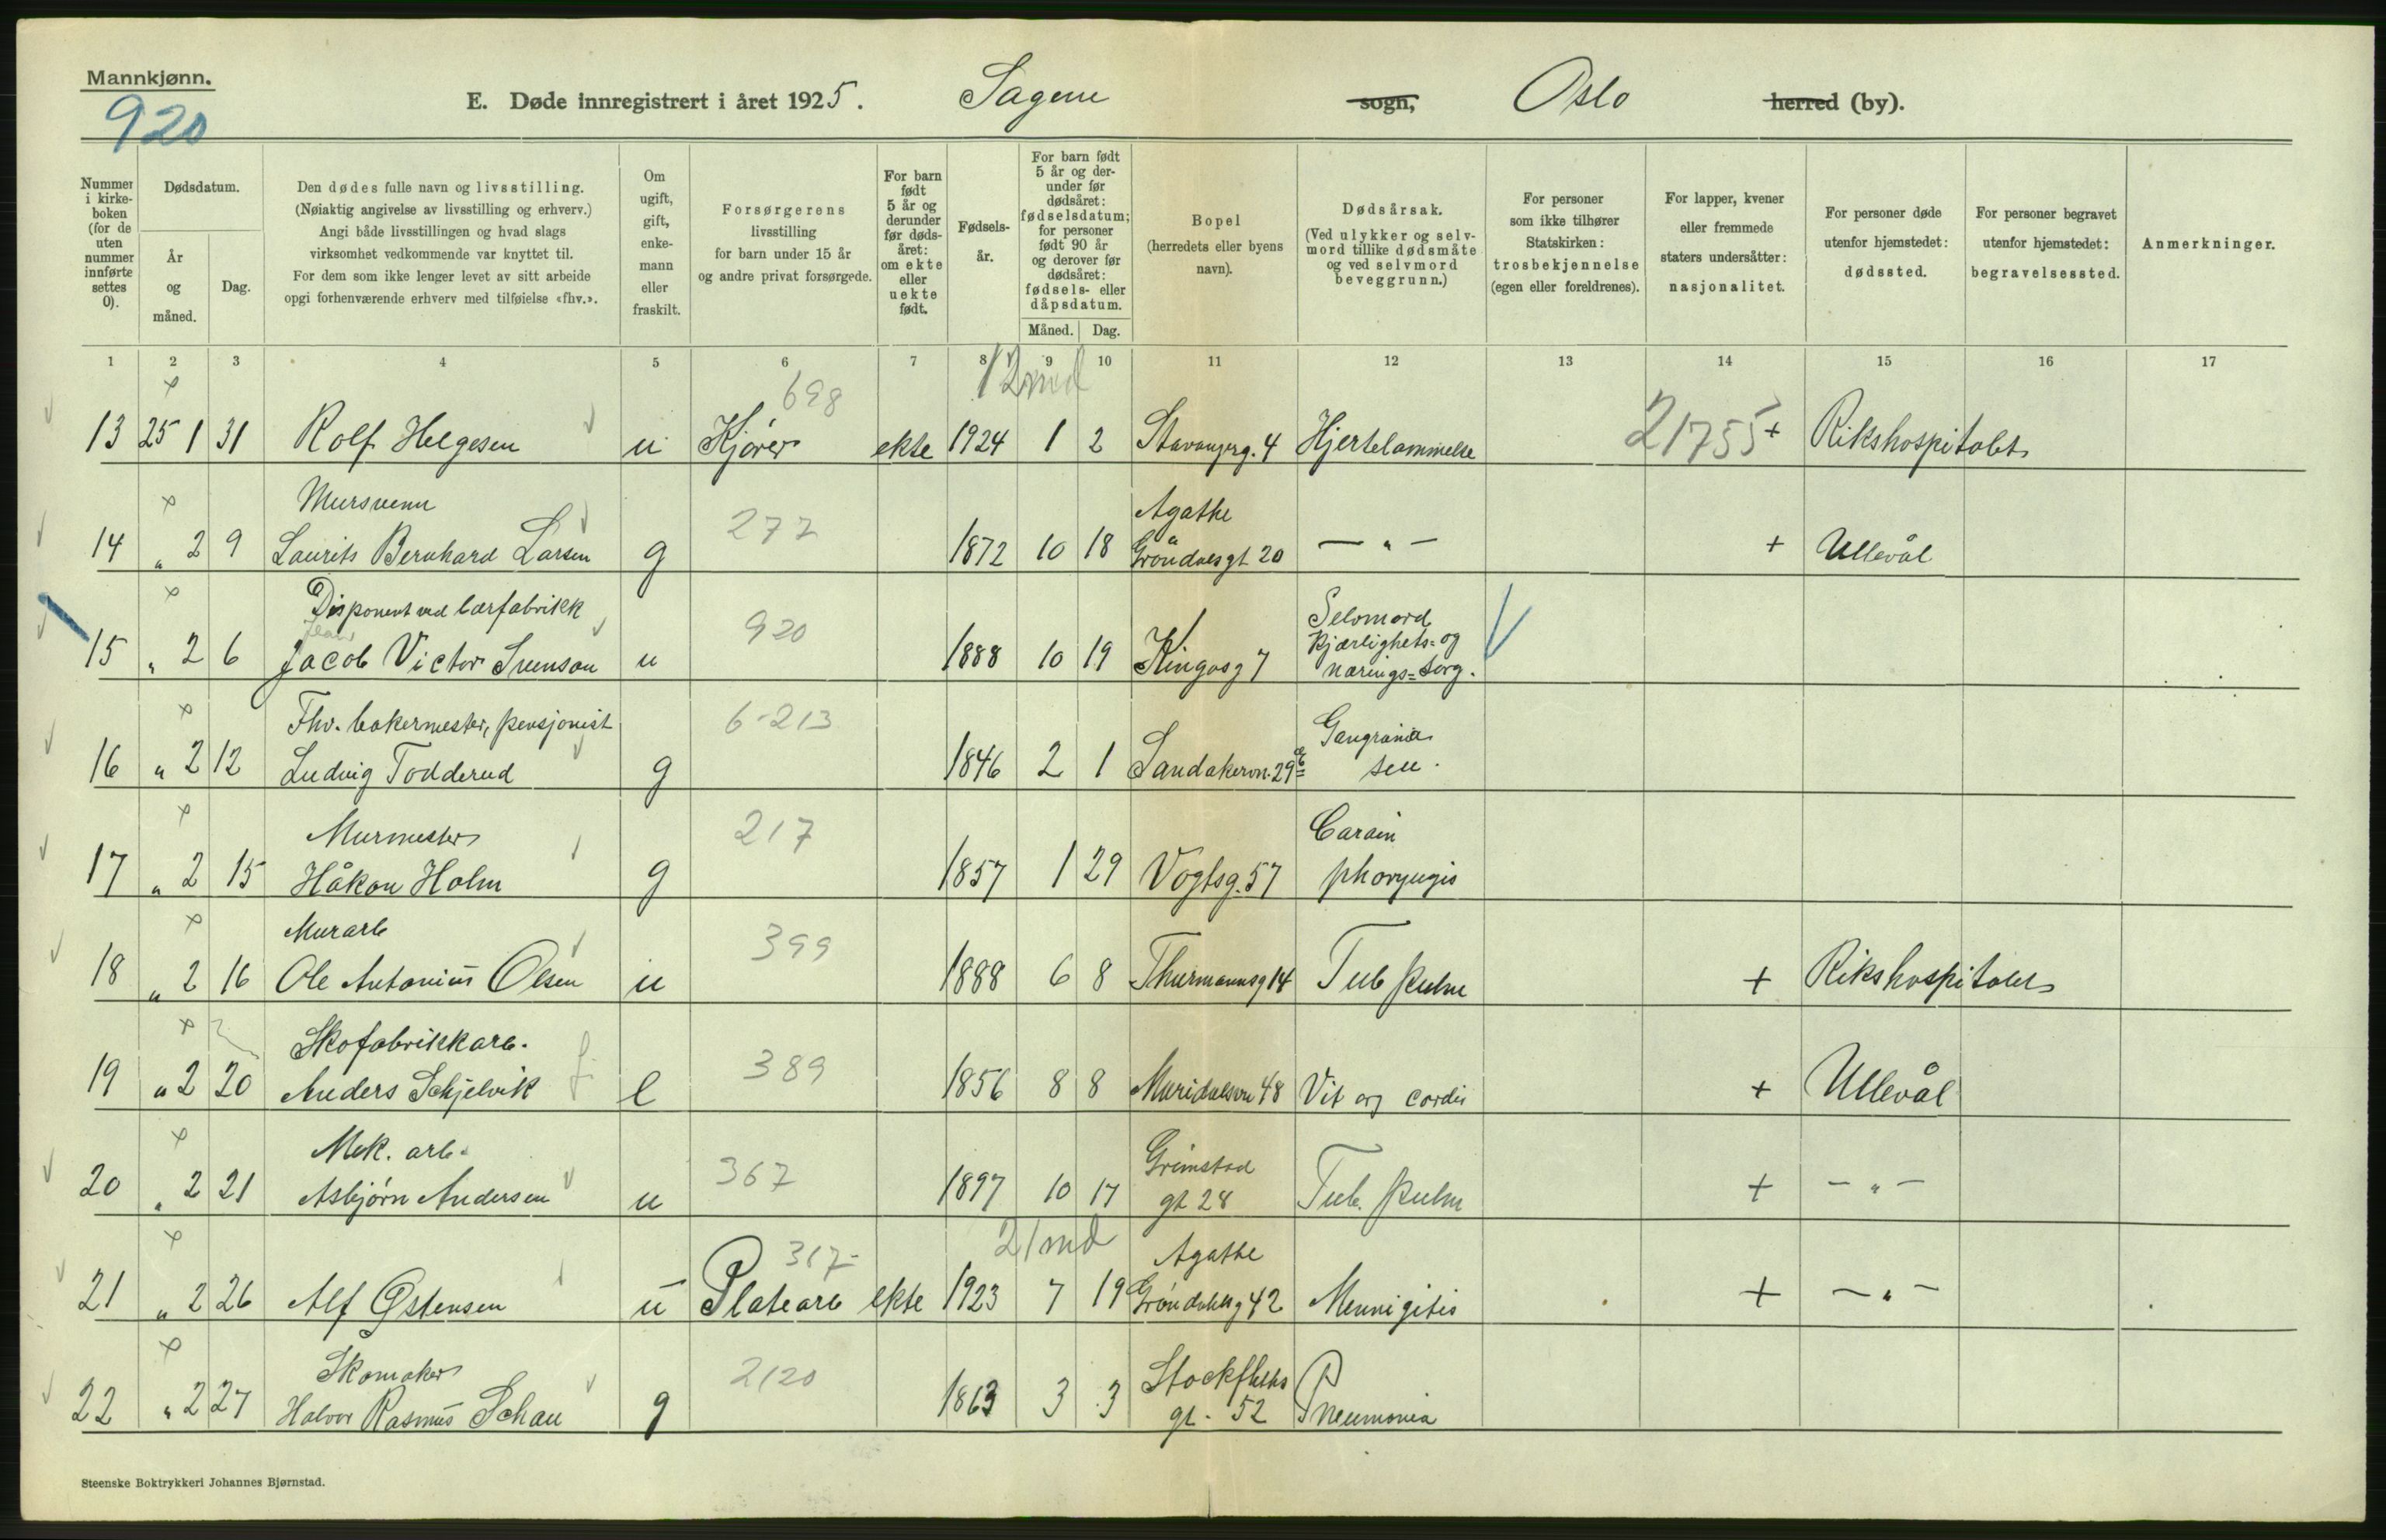 Mannkjønn.
920
E. Døde innregistrert i året 1925. Sagene sogn, Oslo herred (by).
Nummer i kirke-boken (for de uten nummer innførte settes 0).
Dødsdatum.
År og måned.
Dag.
Den dødes fulle navn og livsstilling.
(Nøiaktig angivelse av livsstilling og erhverv.)
Angi både livsstillingen og hvad slags
virksomhet vedkommende var knyttet til.
For dem som ikke lenger levet av sitt arbeide
opgi forhenværende erhverv med tilføielse «fhv.».
Om ugift, gift, enke-mann eller fraskilt.
Forsørgerens
livsstilling
for barn under 15 år
og andre privat forsørgede.
For barn født 5 år og derunder før døds-året: om ekte eller uekte født.
Fødsels-år.
For barn født 5 år og der-under før dødsåret: fødselsdatum; for personer født 90 år og derover før dødsåret: fødsels- eller dåpsdatum.
Måned. Dag.
Bopel
(herredets eller byens
navn).
Dødsårsak.
(Ved ulykker og selv-
mord tillike dødsmåte
og ved selvmord
beveggrunn.)
For personer
som ikke tilhører
Statskirken:
trosbekjennelse
(egen eller foreldrenes).
For lapper, kvener
eller fremmede
staters undersåtter:
nasjonalitet.
For personer døde
utenfor hjemstedet:
dødssted.
For personer begravet
utenfor hjemstedet:
begravelsessted.
Anmerkninger.
1 2 3 4 5 6 7 8 9 10 11 12 13 14 15 16 17
698 12 md
13 25 1 31 Rolf Helgesen u Kjører ekte 1924 1 2 Stavangerg. 4 Hjertelammelse 21755 + Rikshospitalet
Mursvenn 277 Agathe
14 " 2 9 Laurits Bernhard Larsen g 1872 10 18 Grøndalsgt 20 — " — + Ullevål
Disponent ved lærfabrikk 920 Selvmord
Kjærlighets= og
15 " 2 6 Jacob Victor Svenson u 1888 10 19 Kingosg 7 nærings=sorg.
Fhv. bakermester, pensjonist 6-213 Gangræna
16 " 2 12 Ludvig Todderud g 1846 2 1 Sandakervn. 29 sen.
Murmester 217 Carcin
17 " 2 15 Håkon Holm g 1857 1 29 Vogtsg. 57 pharyngis
Murarb 399
18 " 2 16 Ole Antonius Olsen u 1888 6 8 Thurmannsg 14 Tub pulm + Rikshospitalet
Skofabrikkarb. 389
19 " 2 20 Anders Schjelvik e 1856 8 8 Maridalsvn 48 Vit org cordis + Ullevål
Mek. arb. 367 Grimstad
20 " 2 21 Asbjørn Andersen u 1897 10 17 gt 28 Tub. pulm + — " —
317 21 md Agathe
21 " 2 26 Alf Østensen u Platearb ekte 1923 7 19 Grøndahlsg 42 Mennigitis + — " —
Skomaker 2120 Stockfleths
22 " 2 27 Halvor Rasmus Schau g 1863 3 3 gt. 52 Pneumonia
Steenske Boktrykkeri Johannes Bjørnstad.